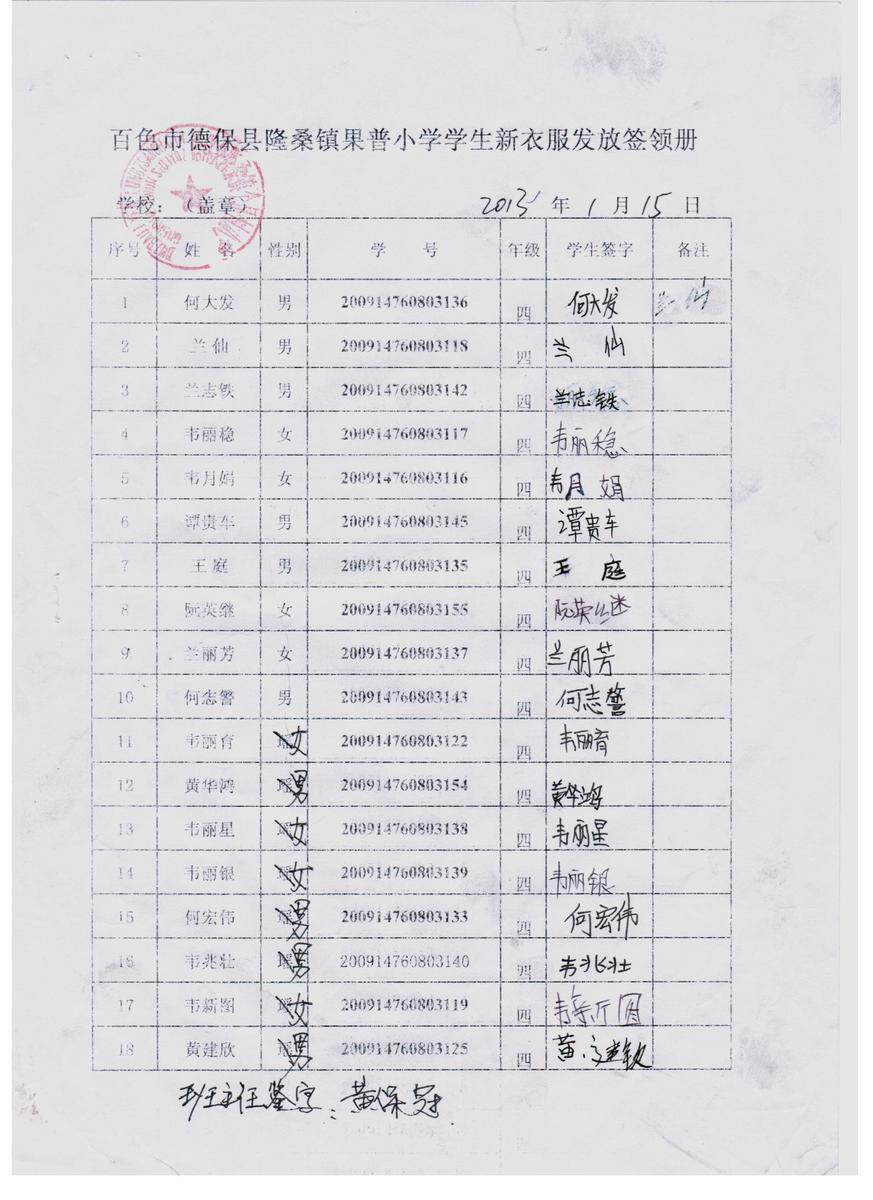 百色市德保县隆桑镇果普小学学生新衣服发放签领册
学校：（盖章） 2013 年 1 月 15 日
序号 姓 名 性别 学 号 年级 学生签字 备注
1 何大发 男 200914760803136 四 何大发 兰仙
2 兰仙 男 200914760803118 四 兰 仙
3 兰志铁 男 200914760803142 四 兰志铁
4 韦丽稳 女 200914760803117 四 韦丽稳
5 韦月娟 女 200914760803116 四 韦月娟
6 谭贵车 男 200914760803145 四 谭贵车
7 王庭 男 200914760803135 四 王 庭
8 阮英继 女 200914760803155 四 阮英继
9 兰丽芳 女 200914760803137 四 兰丽芳
10 何志警 男 200914760803143 四 何志警
11 韦丽育 瑶 女 200914760803122 四 韦丽育
12 黄华鸿 瑶 男 200914760803154 四 黄华鸿
13 韦丽星 瑶 女 200914760803138 四 韦丽星
14 韦丽银 瑶 女 200914760803139 四 韦丽银
15 何宏伟 瑶 男 200914760803133 四 何宏伟
16 韦兆壮 瑶 男 200914760803140 四 韦兆壮
17 韦新图 瑶 女 200914760803119 四 韦新圆
18 黄建欣 瑶 男 200914760803125 四 黄建钦
班主任鉴字：黄保冠